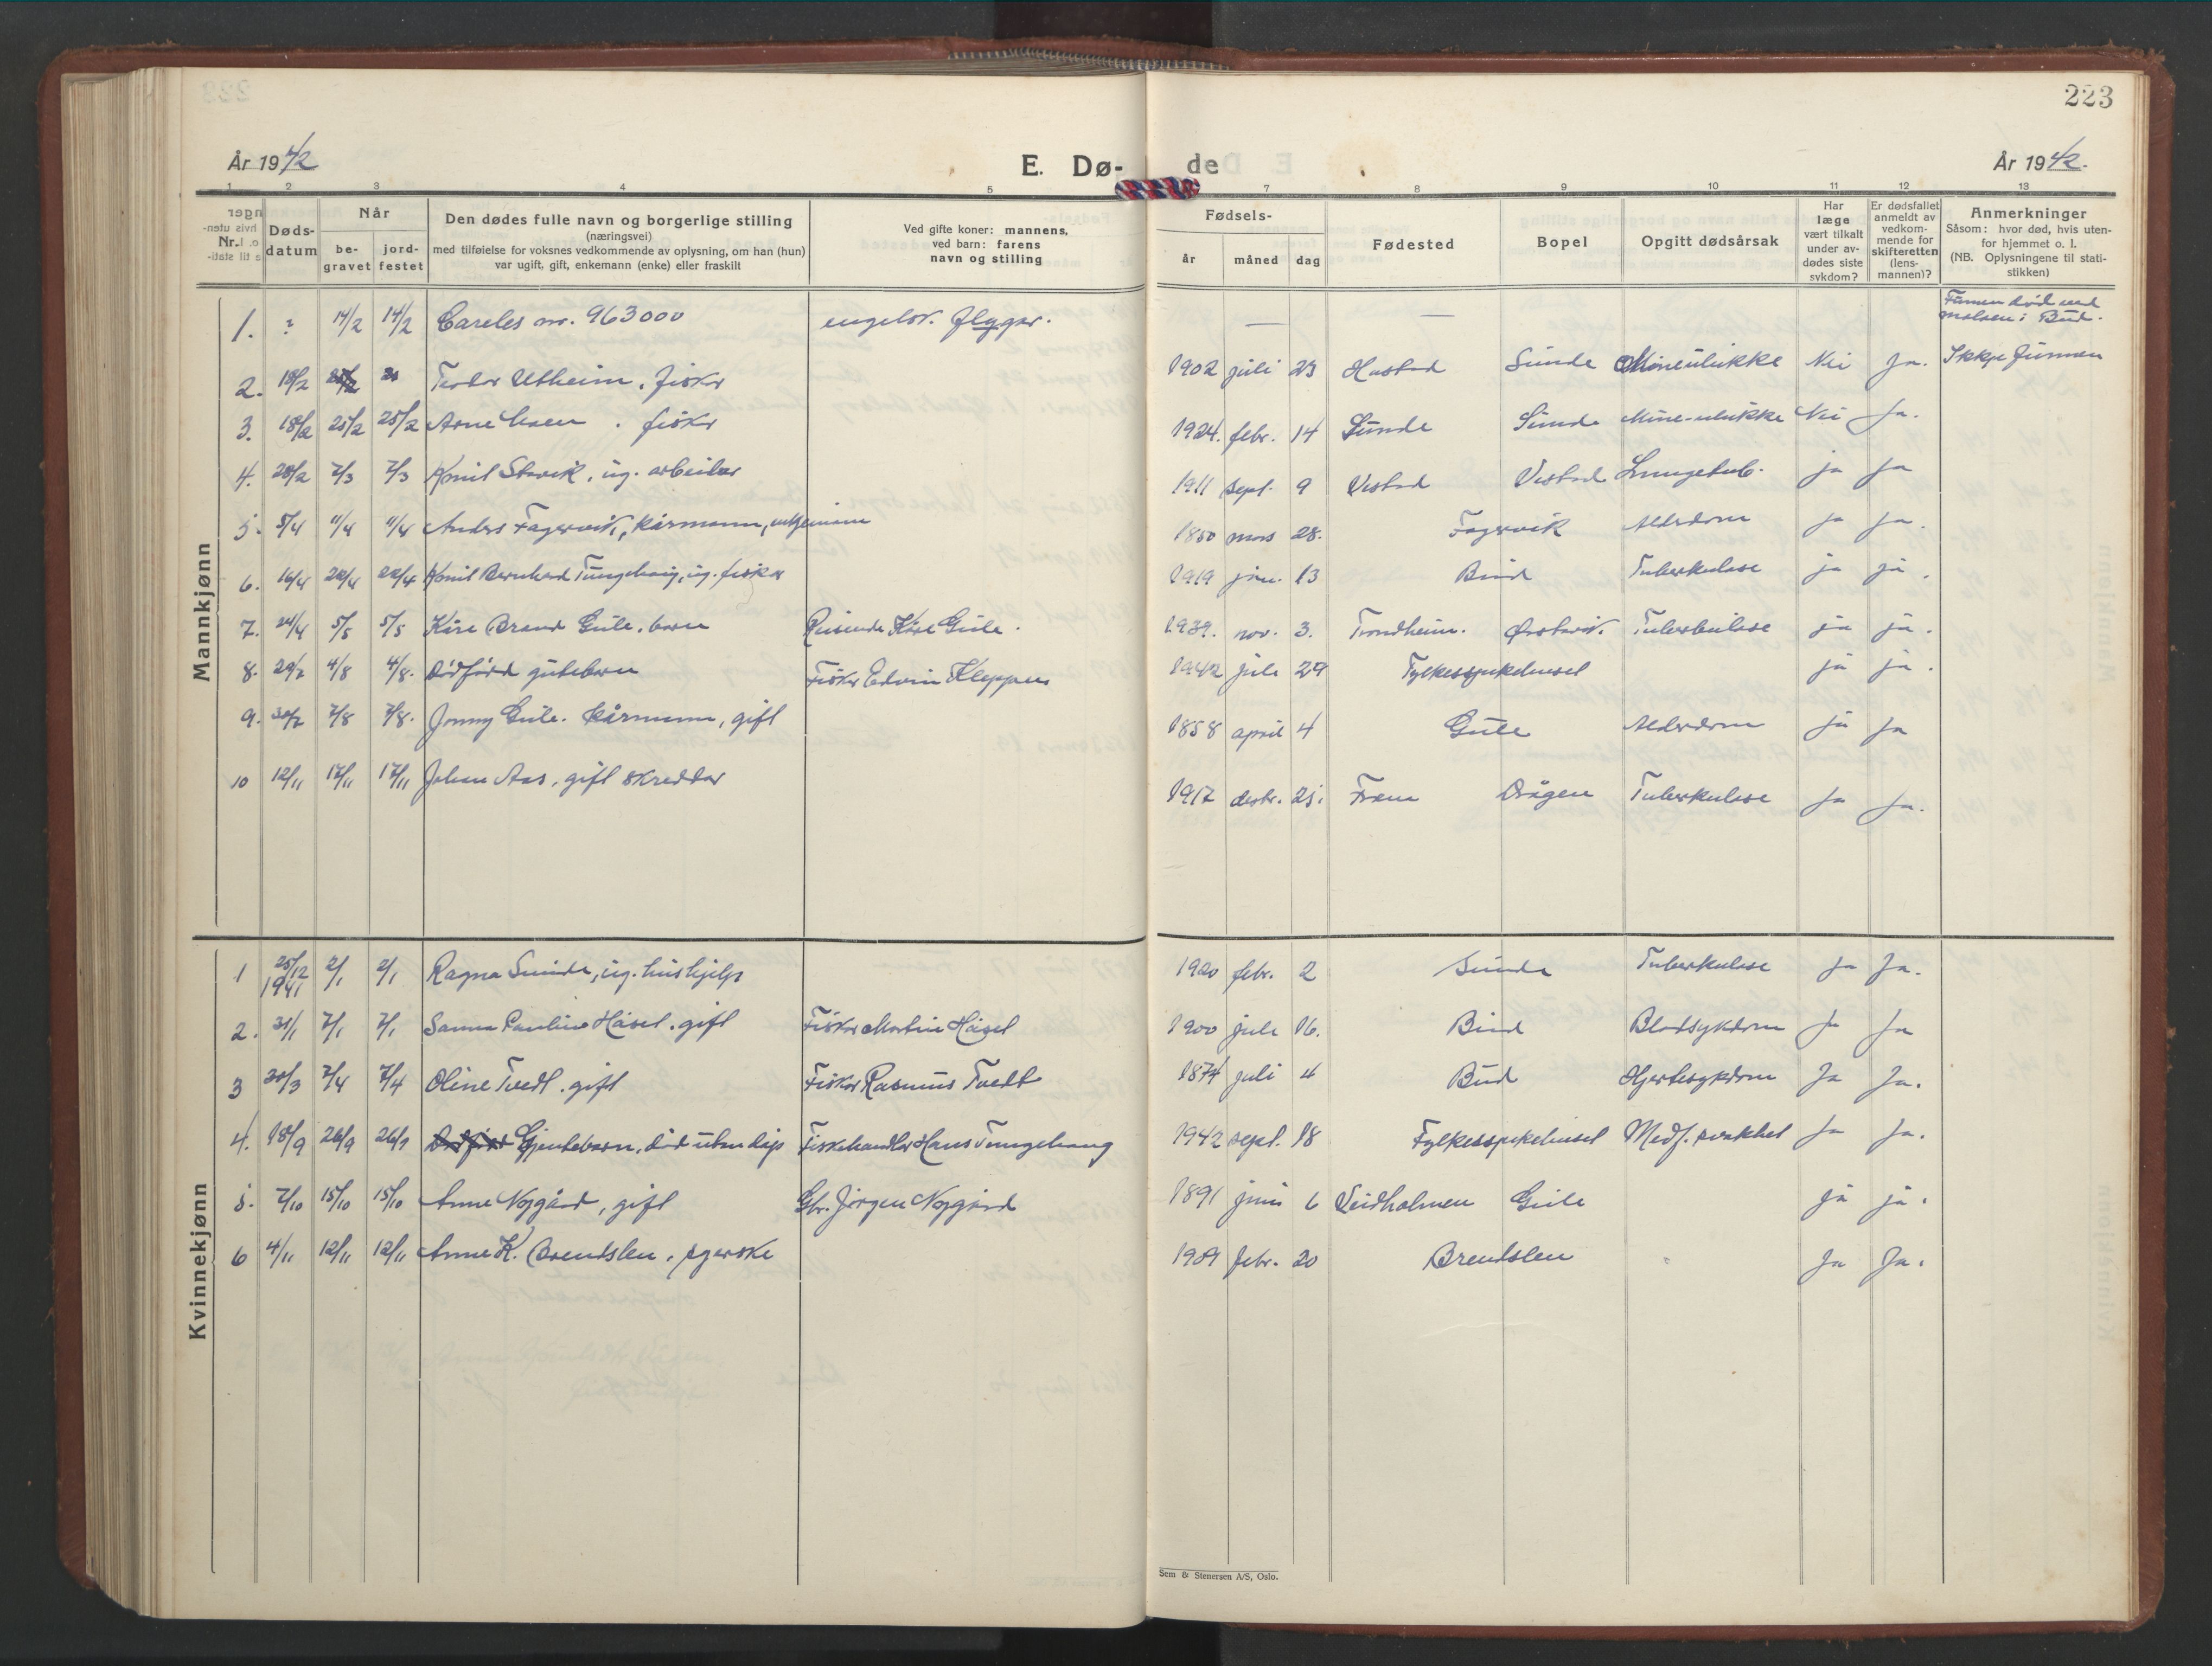 223
År 1942
E. Dø-
de
År 1942.
1 2 3 4 5 7 8 9 10 11 12 13
Nr.
Døds-
datum
Når
be-
gravet
jord-
festet
Den dødes fulle navn og borgerlige stilling
(næringsvei)
med tilføielse for voksnes vedkommende av oplysning, om han (hun)
var ugift, gift, enkemann (enke) eller fraskilt
Ved gifte koner: mannens,
ved barn: farens
navn og stilling
Fødsels-
år måned dag
Fødested
Bopel
Opgitt dødsårsak
Har
læge
vært tilkalt
under av-
dødes siste
sykdom?
Er dødsfallet
anmeldt av
vedkom-
mende for
skifteretten
(lens-
mannen)?
Anmerkninger
Såsom: hvor død, hvis uten-
for hjemmet o. l.
(NB. Oplysningene til stati-
stikken)
Mannkjønn
1. ? 14/2 14/2 Careles nr. 963000 engelsk. flyger. — — Funnen død ved
moloen i Bud.
2. 18/2 Teodor Utheim, fisker 1902 juli 23 Hustad Sunde Mineulukke Nei Ja. Ikkje funnen
3. 18/2 25/2 25/2 Arne fisker 1924. febr. 14 Sunde Sunde Mine-ulukke Nei Ja.
4. 28/2 7/3 7/3 Konil Stavik, ug. arbeider 1911 sept. 9 Vestad Vestad Lungetub. ja ja
5. 5/4 11/4 11/4 Anders Fagervik, kårmann, enkjemann 1850 mars 28. Fagervik Alderdom ja ja.
6. 16/4 22/4 22/4 Konil Bernhard Tungehaug, ug. fisker 1919 jan. 13 Bud Tuberkulose ja ja.
7. 24/4 5/5 5/5 Kåre Brand Gule, barn Reisende Kåre Gule. 1939. nov. 3. Trondheim. Ørstavik. Tuberkulose ja ja.
8. 29/7 4/8 4/8. Dødfødd gutebarn Fisker Edvin Kleppen 1942 juli 29 Fylkessjukehuset ja ja.
9. 30/7 7/8 7/8. Jonny Gule. Kårmann, gift 1858 april 4 Gule Alderdom ja ja
10 12/11 17/11 17/11 Johan Aas, gift skredder 1917 desbr. 25. Fræna Drågen Tuberkulose ja ja.
Kvinnekjønn
1 25/12
1941 2/1 2/1 Ragna Sunde, ug. hushjelp 1920 febr. 2 Sunde Tuberkulose ja Ja.
2. 31/1 7/1 7/1 Sanna Pauline Håset. gift Fisker Martin Håset 1900 juli 16. Bud Blodsykdom ja Ja
3 30/3 7/4 7/4 Oline Tvedt. gift Fisker Rasmus Tvedt 1874 juli 4 Bud Hjertesykdom Ja Ja.
4. 18/9 26/9 26/9 Gjentebarn, død uten dåp Fiskehandler Hans Tungehaug 1942 sept. 18 Fylkessjukehuset Medf. svakhet Ja Ja.
5. 7/10 15/10 15/10 Anne Nygård, gift Gbr. Jørgen Nygård 1891 juni 6 Veidholmen Gule ja ja.
6 4/11 12/11 12/11 Anne K. Brendslen, sgerske 1909 febr. 20 Brendslen Ja Ja.
Sem & Stenersen A/S, Oslo.